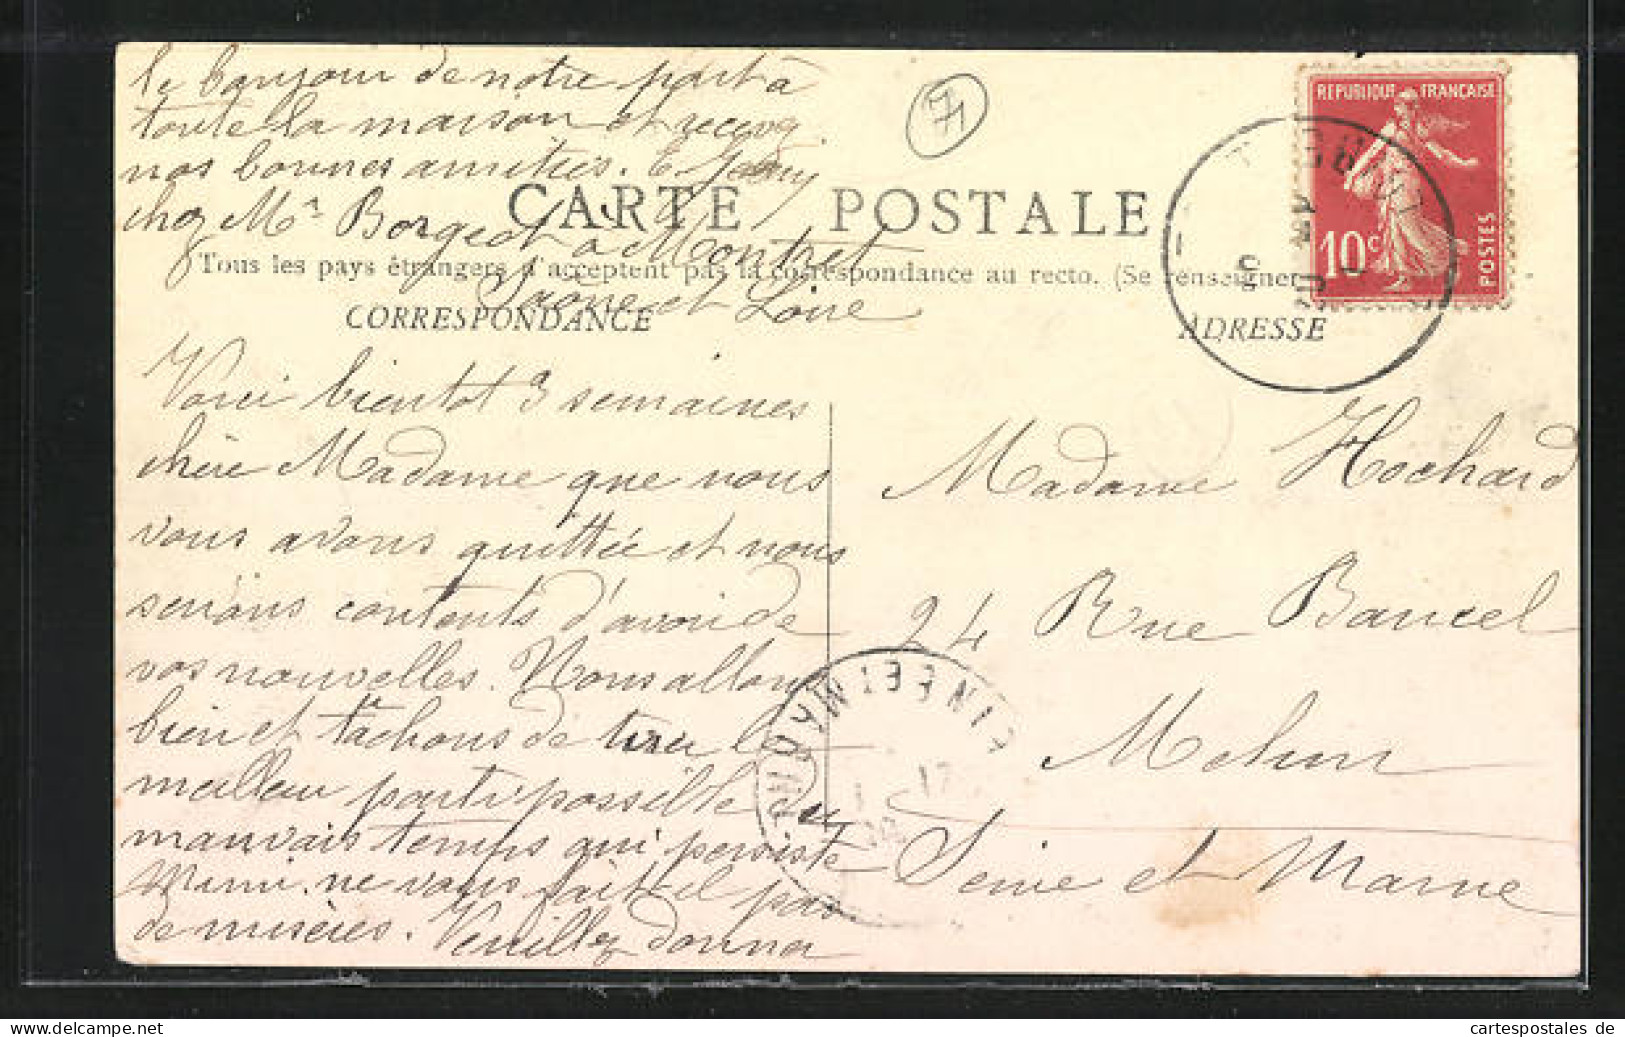 le bonjour de notre part à
toute la maison et recevez
nos bonnes amitiés. E.
chez Mr Borgeot à Montret
Saône et Loire
CARTE POSTALE
Tous les pays étrangers n'acceptent pas la correspondance au recto. (Se renseigner
CORRESPONDANCE
Voici bientot 3 semaines
chère Madame que nous
vous avons quittée et nous
serions contents d'avoir de
vos nouvelles. Nous allons
bien et tâchons de tirer le
meilleur parti possible du
mauvais temps qui persiste
Mimi. ne vous fait il pas
de misères. Veuillez donner
ADRESSE
Madame Hochard
24 Rue Bancel
Melun
Seine et Marne
71
REPUBLIQUE FRANÇAISE
10c
POSTES
SEINE ET MARNE
17
cartespostales de